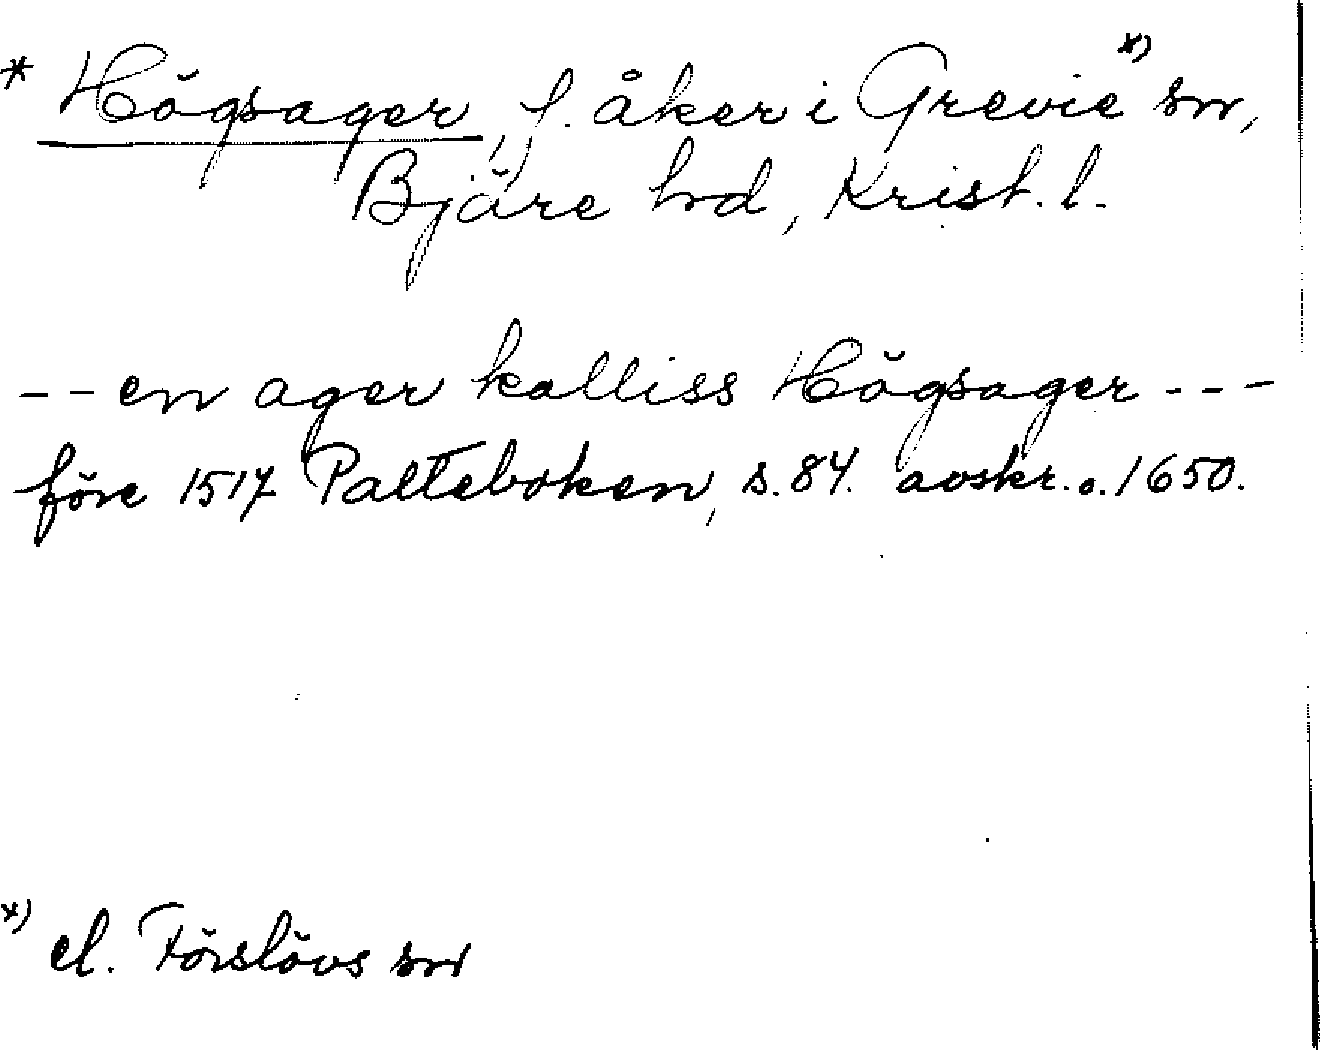 * Högsager, f. åker i Grevie x) sn,
Bjäre hd, Krist. l.
-- en ager kalliss Högsager ---
före 1517 Palteboken, s. 84. avskr. o. 1650.
x) el. Förslövs sn